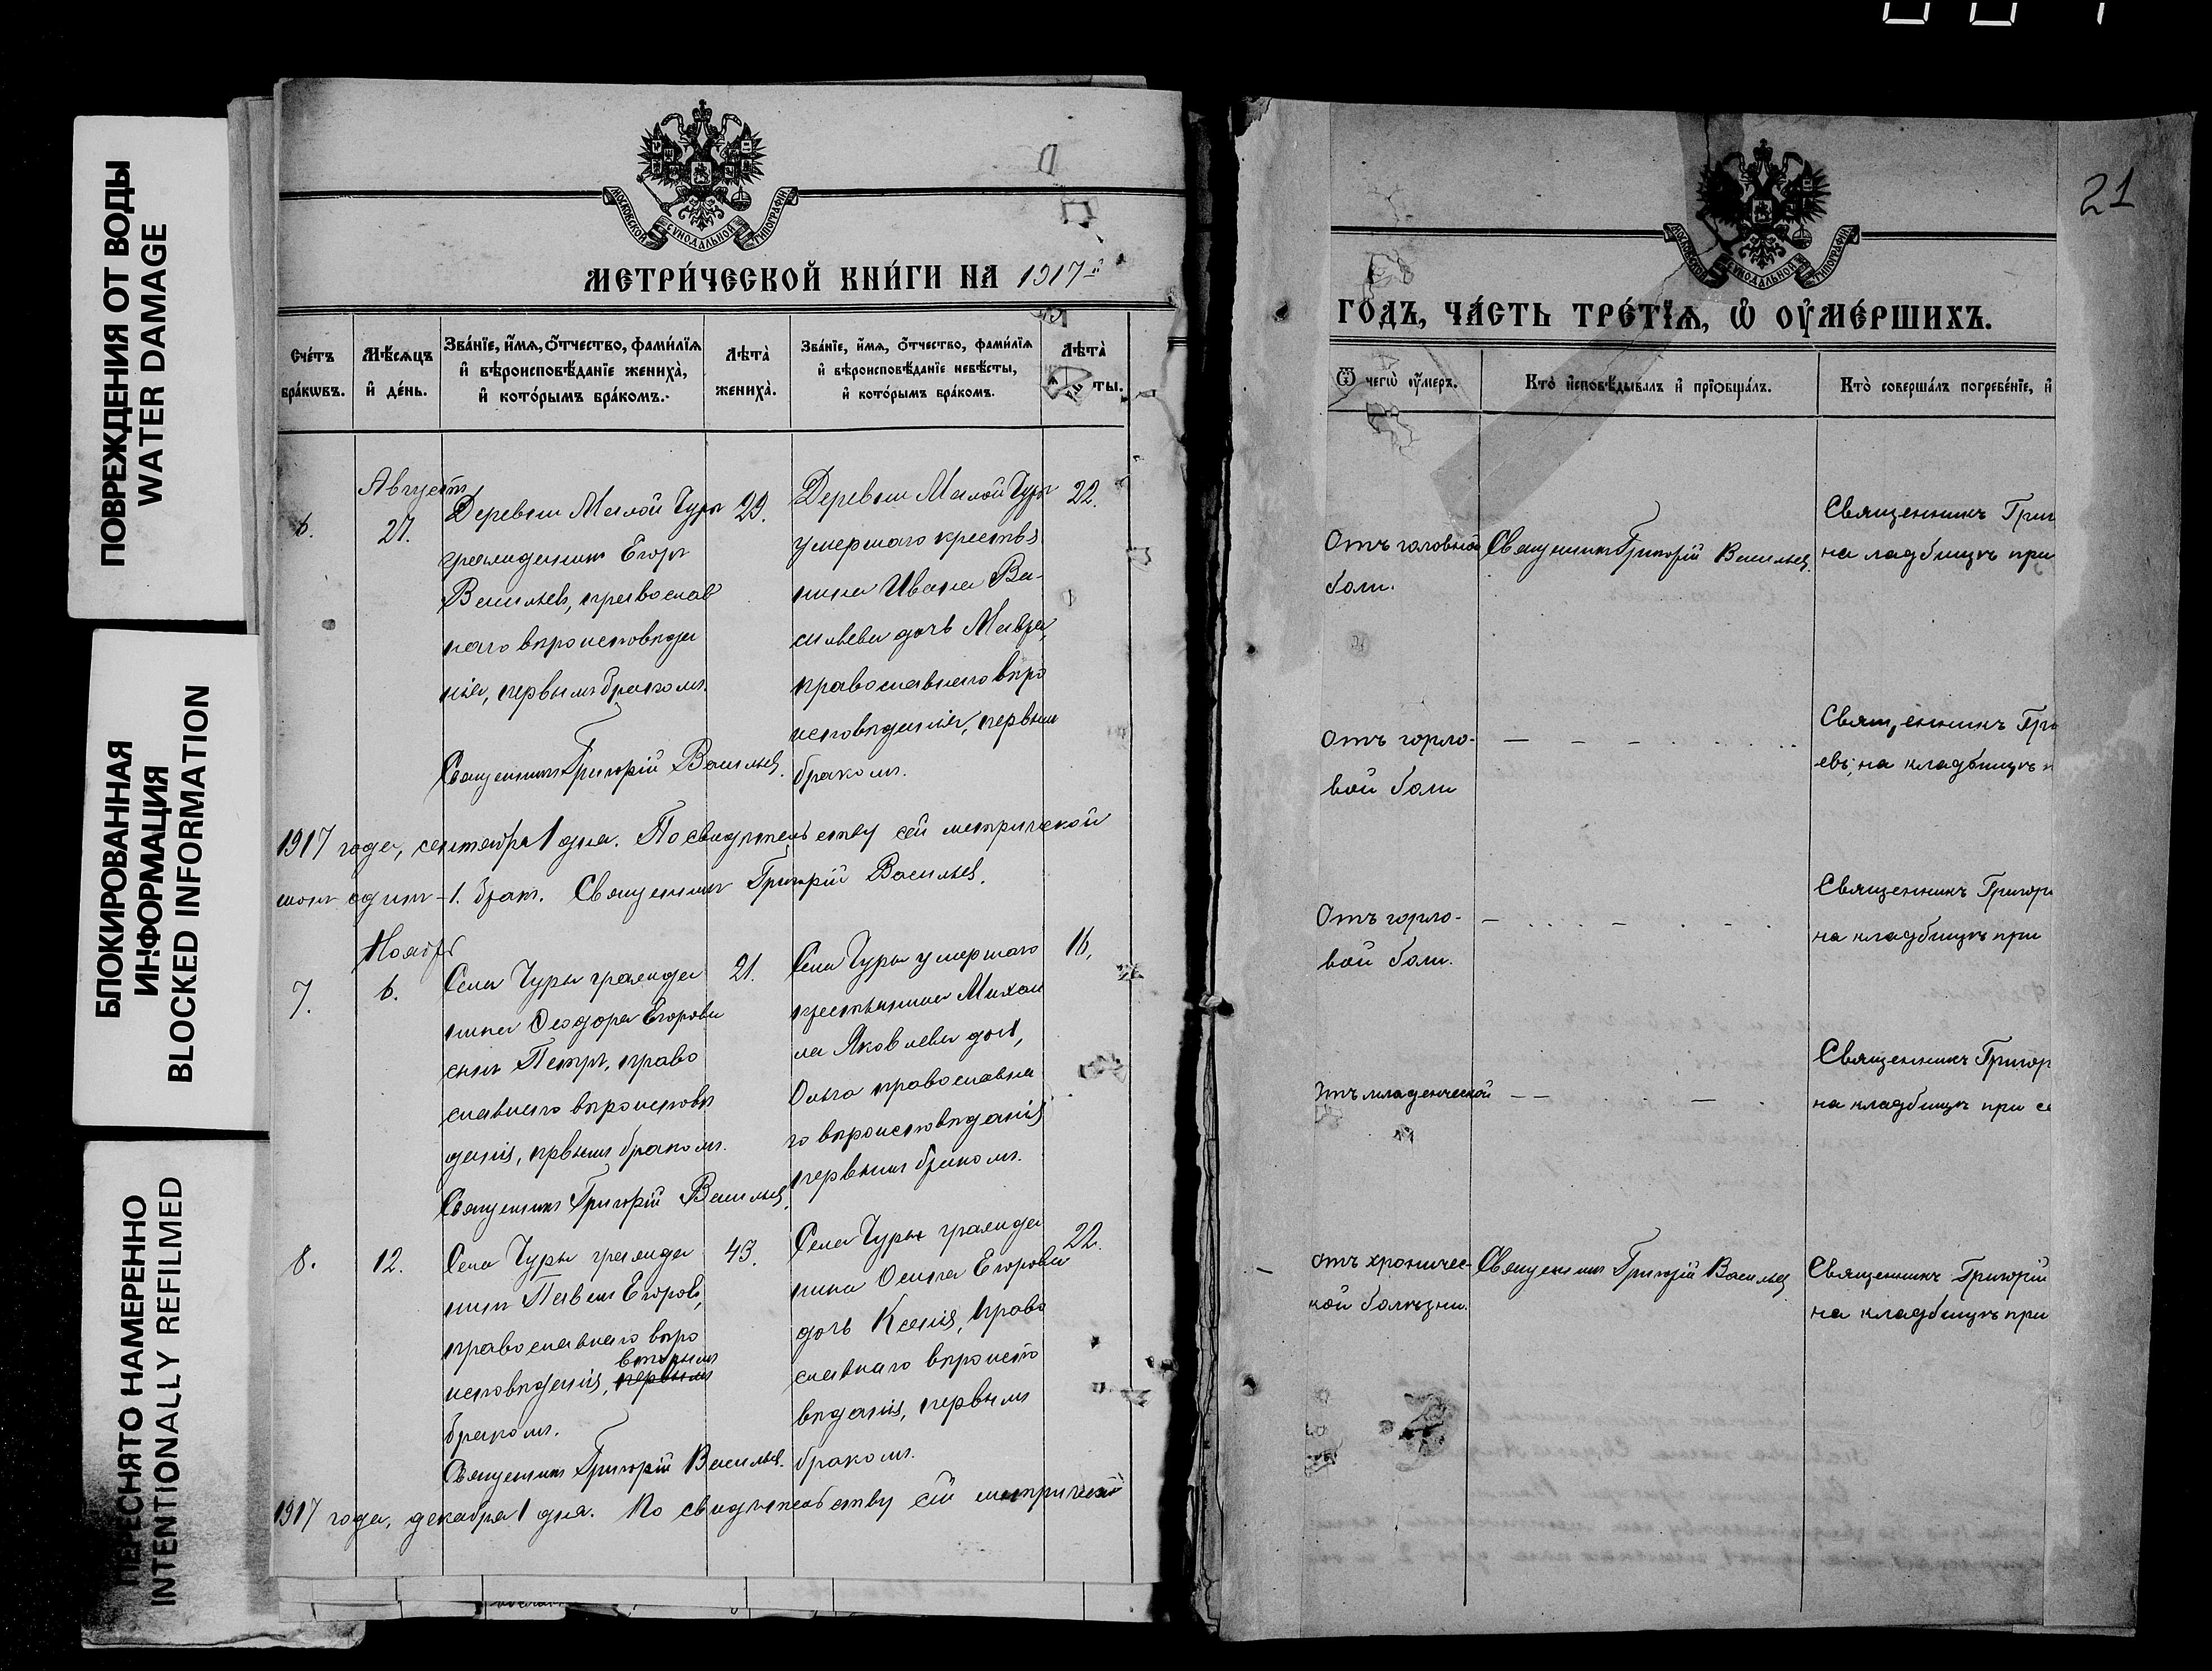 ПОВРЕЖДЕНИЯ ОТ ВОДЫ
WATER DAMAGE
БЛОКИРОВАННАЯ
ИНФОРМАЦИЯ
BLOCKED INFORMATION
ПЕРЕСНЯТО НАМЕРЕННО
INTENTIONALLY REFILMED
МОСКОВСКОЙ СѴНОДАЛЬНОЙ ТИПОГРАФІИ
МЕТРИ́ЧЕСКОЙ КНИ́ГИ НА 1917-й
Сче́тъ
бра́кѡвъ.
Мѣ́сѧцъ
и҆ де́нь.
Зва́нїе, и҆́мѧ, ѻ҆́тчество, фами́лїѧ
и҆ вѣроисповѣ́данїе жениха̀,
и҆ кото́рымъ бра́комъ.
Лѣта̀
жениха̀.
Зва́нїе, и҆́мѧ, ѻ҆́тчество, фами́лїѧ
и҆ вѣроисповѣ́данїе невѣ́сты,
и҆ кото́рымъ бра́комъ.
Лѣта̀
ты.
6.
Августъ
27.
Деревни Малой Чуры
гражданинъ Егоръ
Васильевъ, православ
наго вѣроисповѣда
нія, первымъ бракомъ.
Священникъ Григорій Васильев.
29.
Деревни Малой Чуры
умершаго крестья
нина Ивана Ва-
сильева дочь Мавра,
православнаго вѣро
исповѣданія, первым
бракомъ.
22.
1917 года, сентября 1 дня. По свидѣтельству сей метрической
одинъ - 1. бракъ. Священникъ Григорій Васильев.
7.
Ноябрь
6.
Села Чуры гражда
нина Ѳеодора Егорова
сынъ Петръ, право
славнаго вѣроисповѣ
данія, первымъ бракомъ.
Священникъ Григорій Васильев.
21.
Села Чуры умершаго
крестьянина Михаи
ла Яковлева дочь,
Ольга православна
го вѣроисповѣданія
первымъ бракомъ.
16.
8.
12.
Села Чуры гражда
нинъ Павелъ Егоровъ,
православнаго вѣро
вторымъ
исповѣданія, первымъ
бракомъ.
Священникъ Григорій Васильев.
43.
Села Чуры гражда
нина Осипа Егорова
дочь Ксенія, право
славнаго вѣроиспо
вѣданія, первымъ
бракомъ.
22.
1917 года, декабря 1 дня. По свидѣтельству сей метрической
21
МОСКОВСКОЙ СѴНОДАЛЬНОЙ ТИПОГРАФІИ
ГО́ДЪ, ЧА́СТЬ ТРЕ́ТЇѦ, Ѡ҆ ОУ҆МЕ́РШИХЪ.
Ѿ чегѡ̀ ᲂу҆́меръ.
Кто̀ и҆сповѣ́дывалъ и҆ прїѻбща́лъ.
Кто̀ соверша́лъ погребе́нїе, и҆
Отъ головной
боли.
Священникъ Григорій Васильев.
Священникъ Григ
на ладбищѣ при
Отъ горло-
вой боли
Священникъ Гри
евъ, на кладбищѣ
Отъ горло-
вой боли.
Священникъ Григор
на кладбищѣ при
Отъ младенческой
Священникъ Григор
на кладбищѣ при се
Отъ хроничес-
кой болѣзни.
Священникъ Григорій Васильев
Священникъ Григорій
на кладбищѣ при